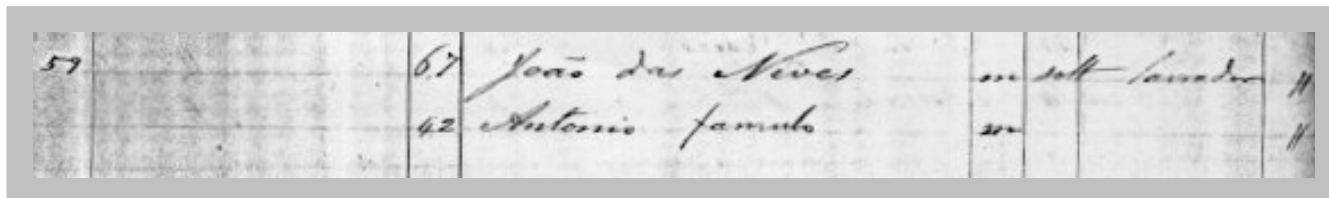 59 67 João das Neves m solt lavrador //
42 Antonio famulo m //